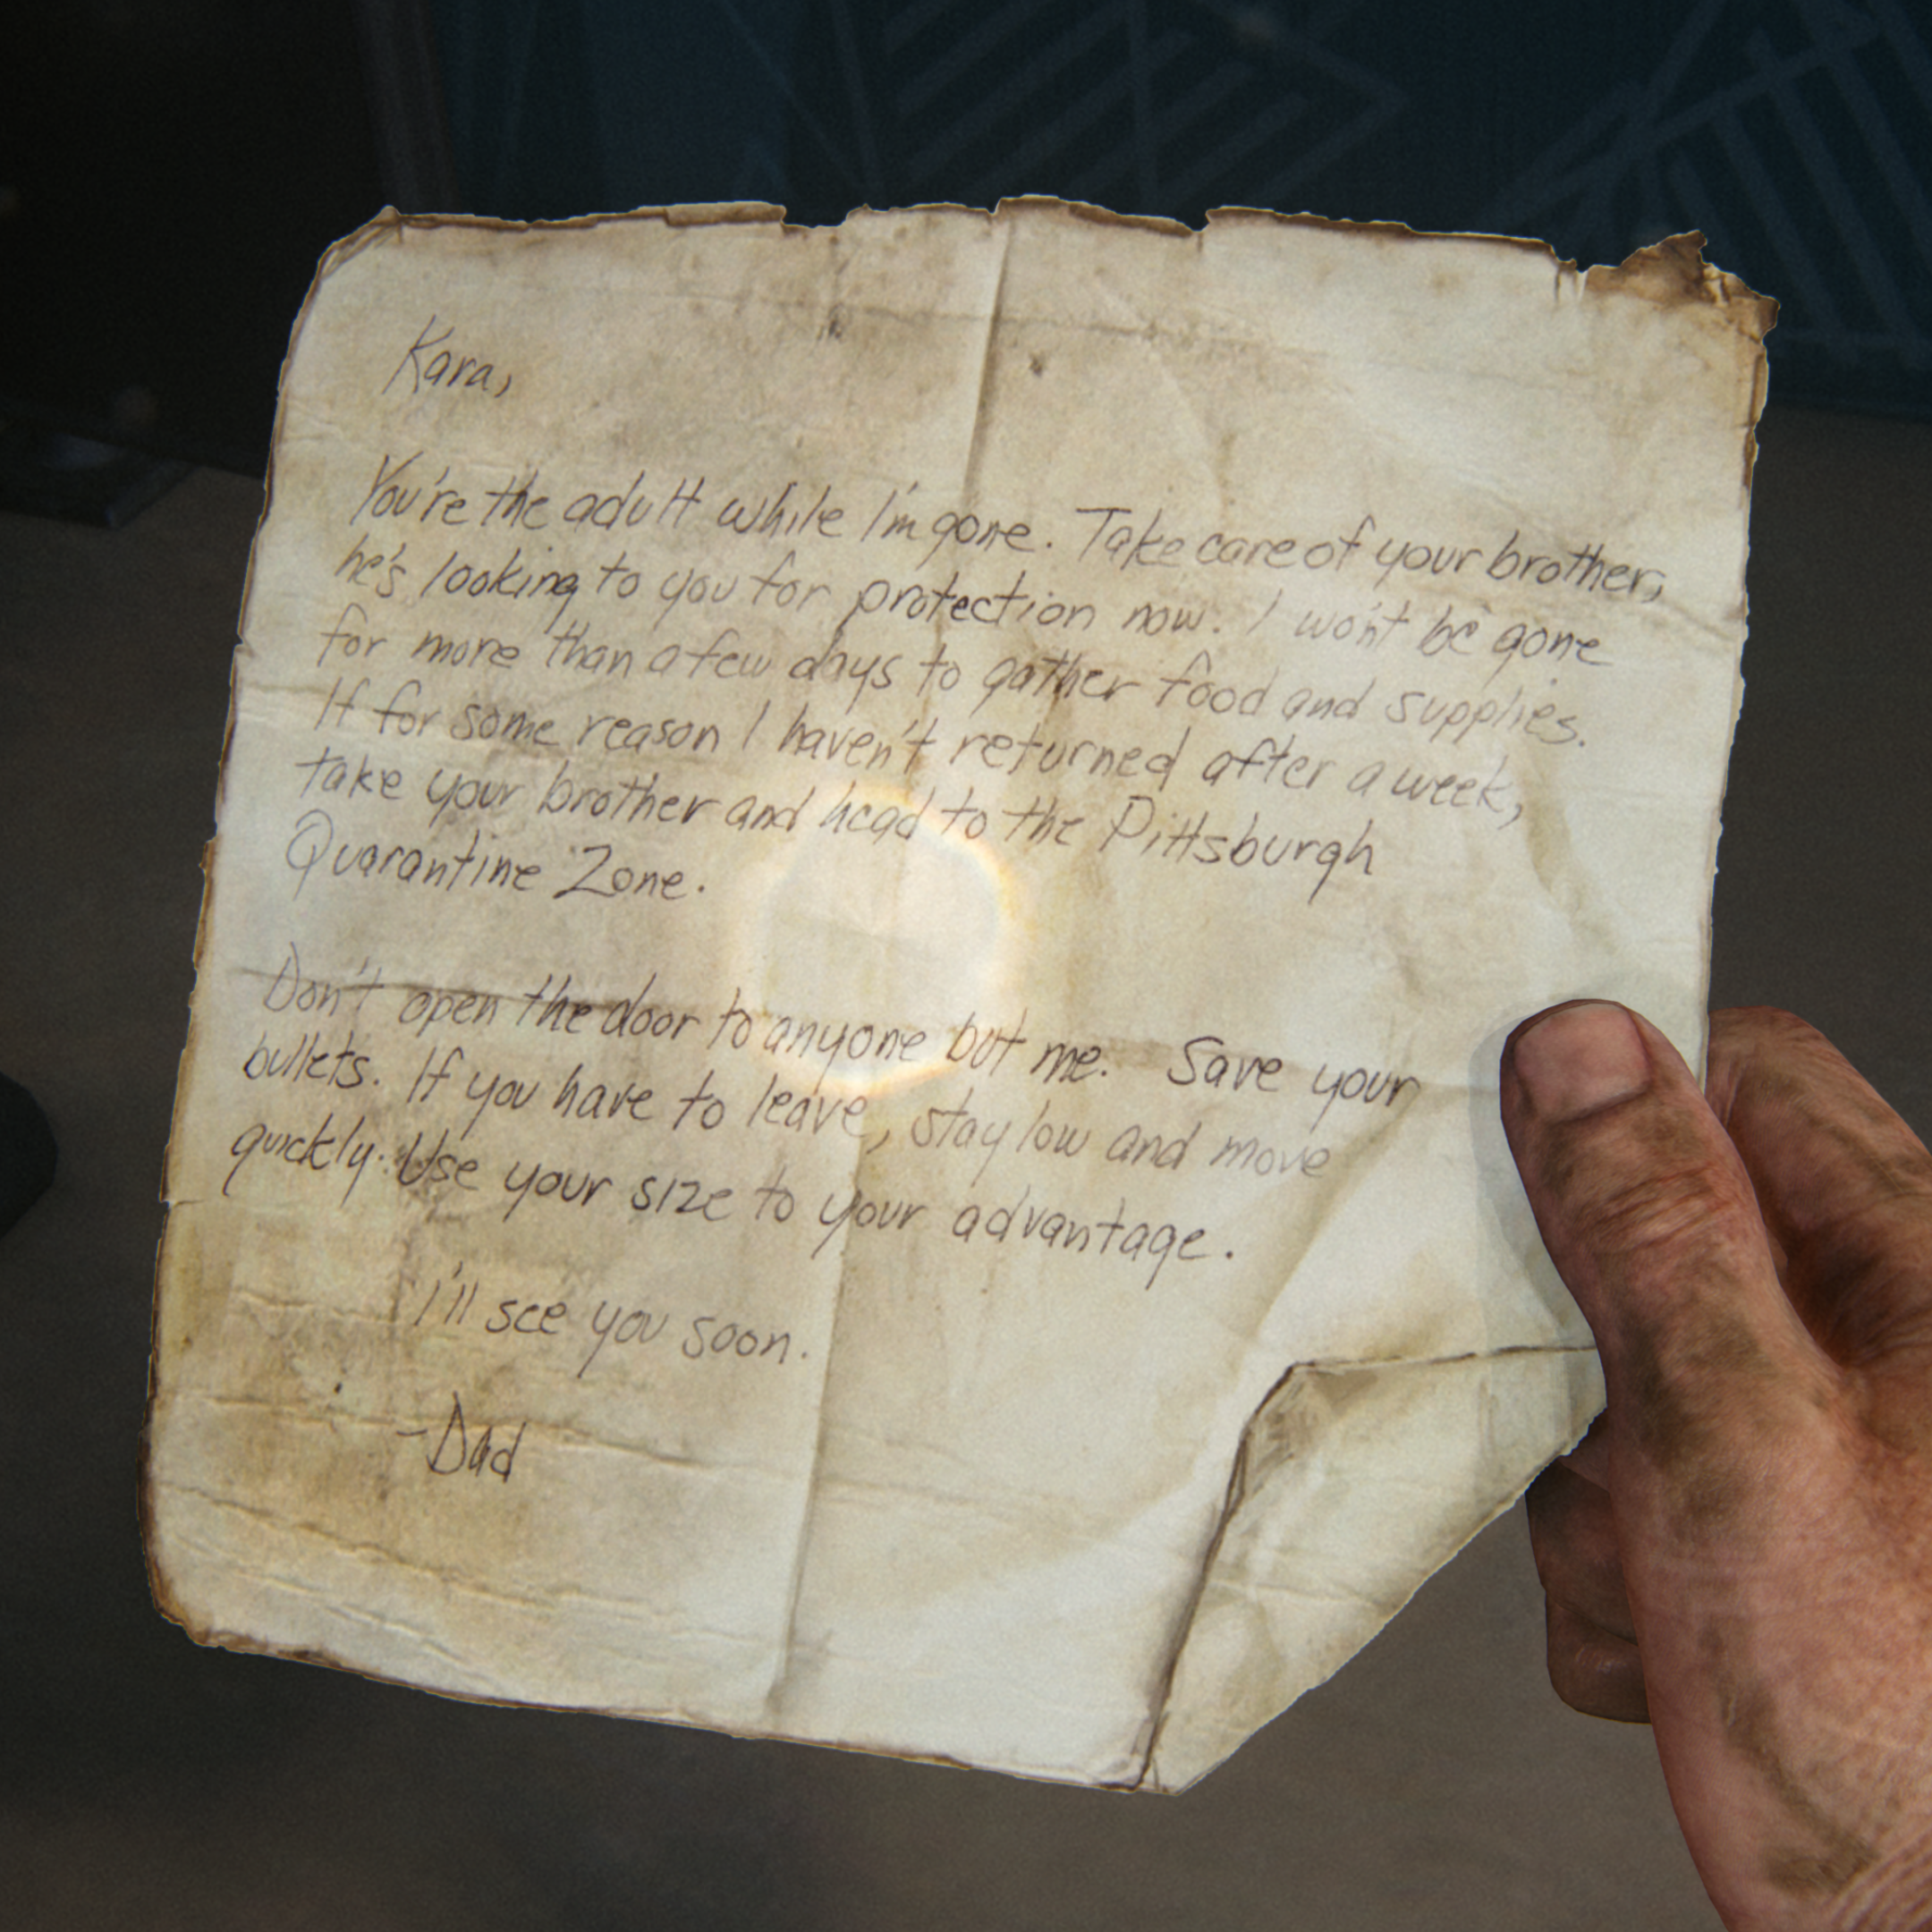 Kara,
You're the adult while I'm gone. Take care of your brother,
he's looking to you for protection now. I won't be gone
for more than a few days to gather food and supplies.
If for some reason I haven't returned after a week,
take your brother and head to the Pittsburgh
Quarantine Zone.
Don't open the door to anyone but me. Save your
bullets. If you have to leave, stay low and move
quickly. Use your size to your advantage.
I'll see you soon.
-Dad